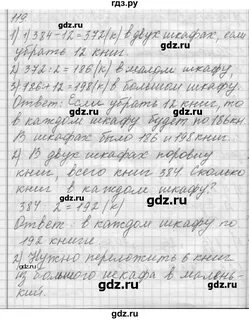 гдз.ру
119
1) 1) 384-12=372(к) в двух шкафах, если
убрать 12 книг.
2) 372:2=186(к) в малом шкафу,
3) 186+12=198(к) в большом шкафу.
Ответ: Если убрать 12 книг, то
в каждом шкафу будет по 186 кн.
В шкафах было 186 и 198 книг.
2) В двух шкафах поровну
книг, всего книг 384 Сколько
книг в каждом шкафу?
384:2=192(к)
Ответ: в каждом шкафу по
192 книги.
2) Нужно переложить 6 книг
из большого шкафа в малень-
кий.
gdz.ru